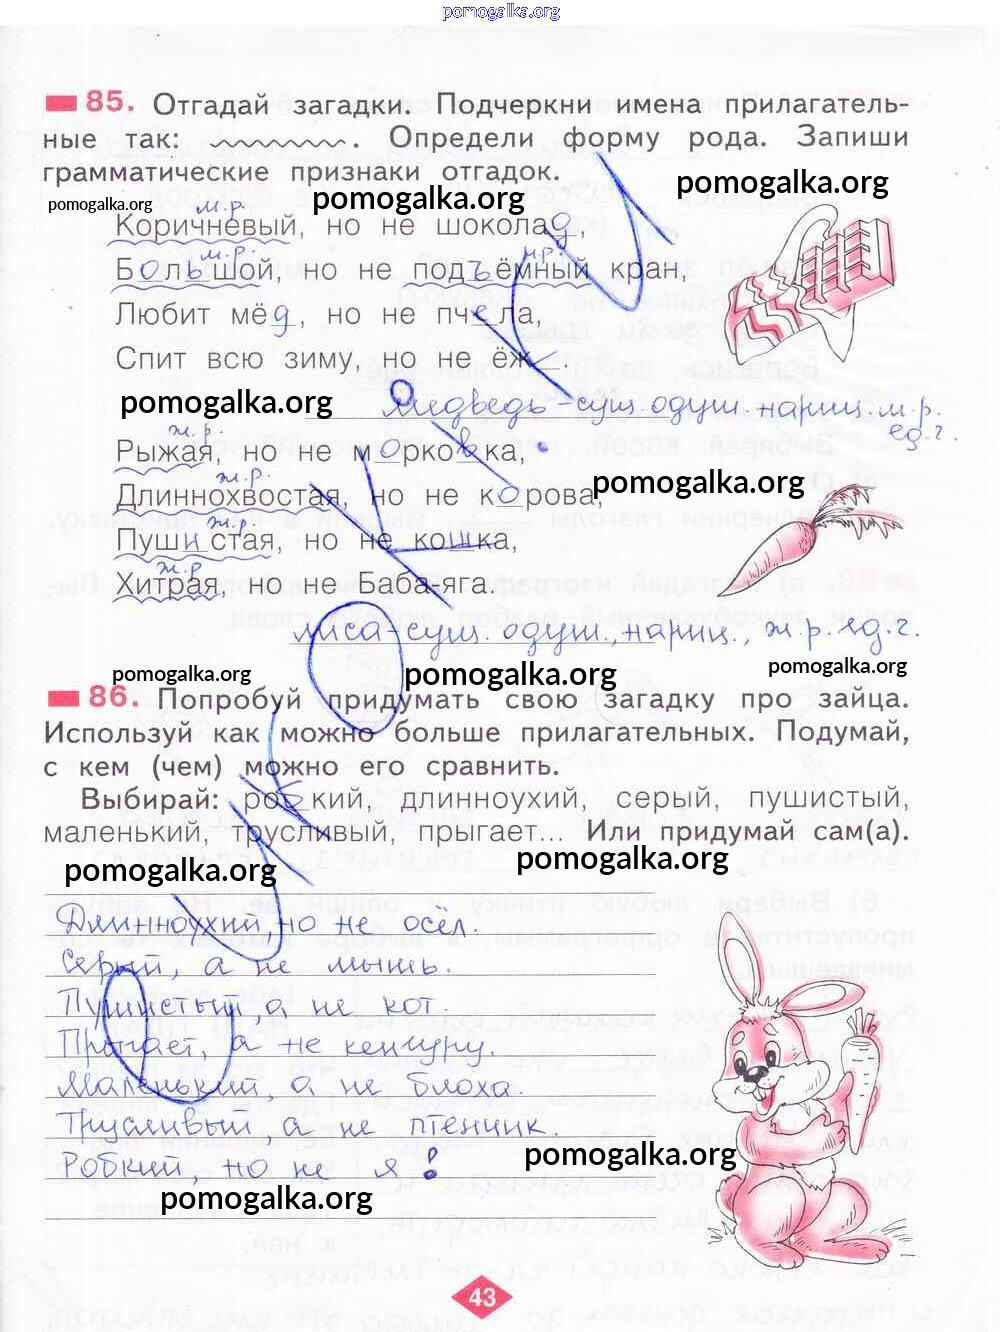 pomogalka.org
85. Отгадай загадки. Подчеркни имена прилагатель-
ные так: . Определи форму рода. Запиши
грамматические признаки отгадок.
pomogalka.org pomogalka.org pomogalka.org
м.р.
Коричневый, но не шоколад,
м.р. м.р.
Большой, но не подъёмный кран,
Любит мёд, но не пчела,
Спит всю зиму, но не ёж
pomogalka.org
медведь - сущ. одуш. нариц. м.р.
ед.ч.
ж.р.
Рыжая, но не морковка,
ж.р.
Длиннохвостая, но не корова,
pomogalka.org
ж.р.
Пушистая, но не кошка,
ж.р.
Хитрая, но не Баба-яга.
лиса - сущ. одуш., нариц., ж.р. ед.ч.
pomogalka.org pomogalka.org pomogalka.org
86. Попробуй придумать свою загадку про зайца.
Используй как можно больше прилагательных. Подумай,
с кем (чем) можно его сравнить.
Выбирай: робкий, длинноухий, серый, пушистый,
маленький, трусливый, прыгает... Или придумай сам(а).
pomogalka.org pomogalka.org
Длинноухий, но не осёл.
Серый, а не мышь.
Пушистый, а не кот.
Прыгает, а не кенгуру.
Маленький, а не блоха.
Трусливый, а не птенчик.
Робкий, но не я!
pomogalka.org
pomogalka.org
43